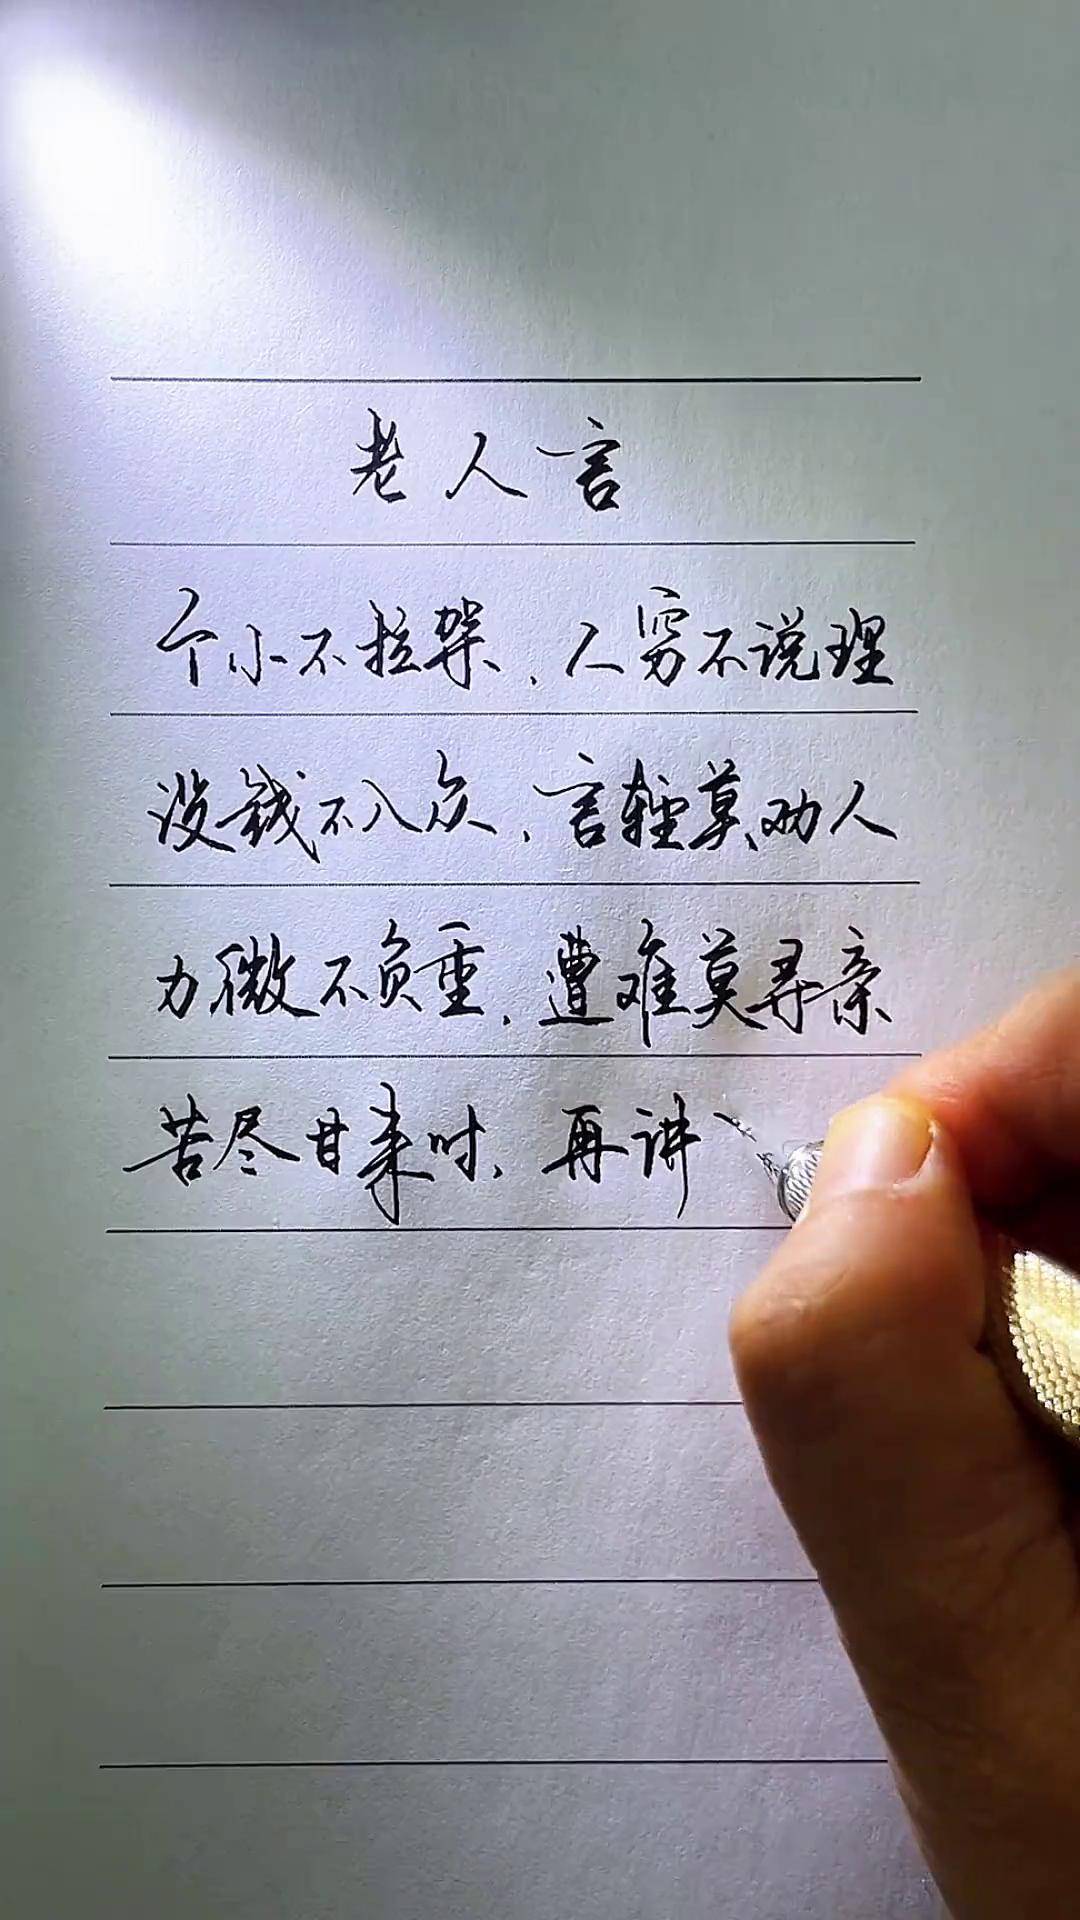 老人言
个小不拉架，人穷不说理
没钱不入众，言轻莫劝人
力微不负重，遭难莫寻亲
苦尽甘来时，再讲